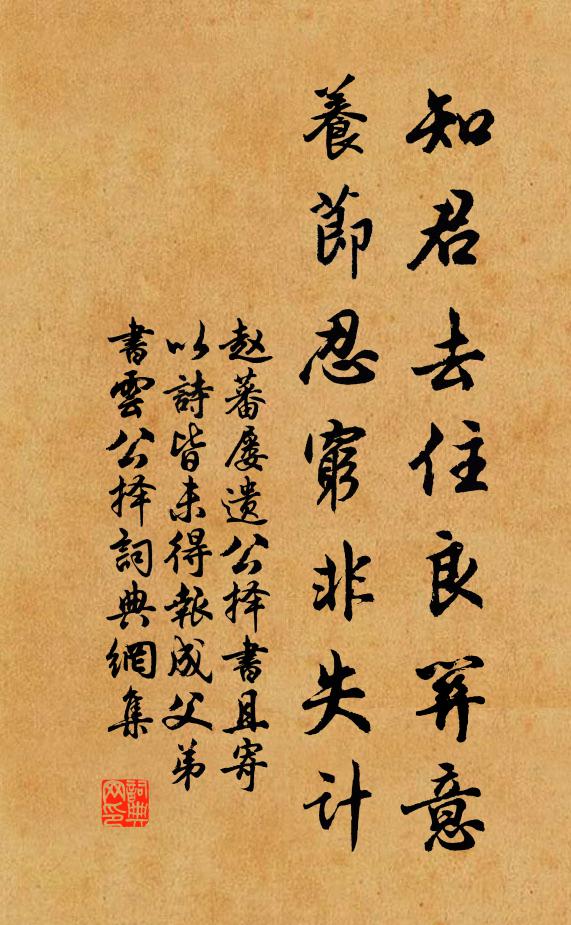 知君去住良關意
養節忍窮非失計
赵蕃屡遗公择書且寄
以詩皆未得報成父弟
書雲公择詞典網集
詞典网印